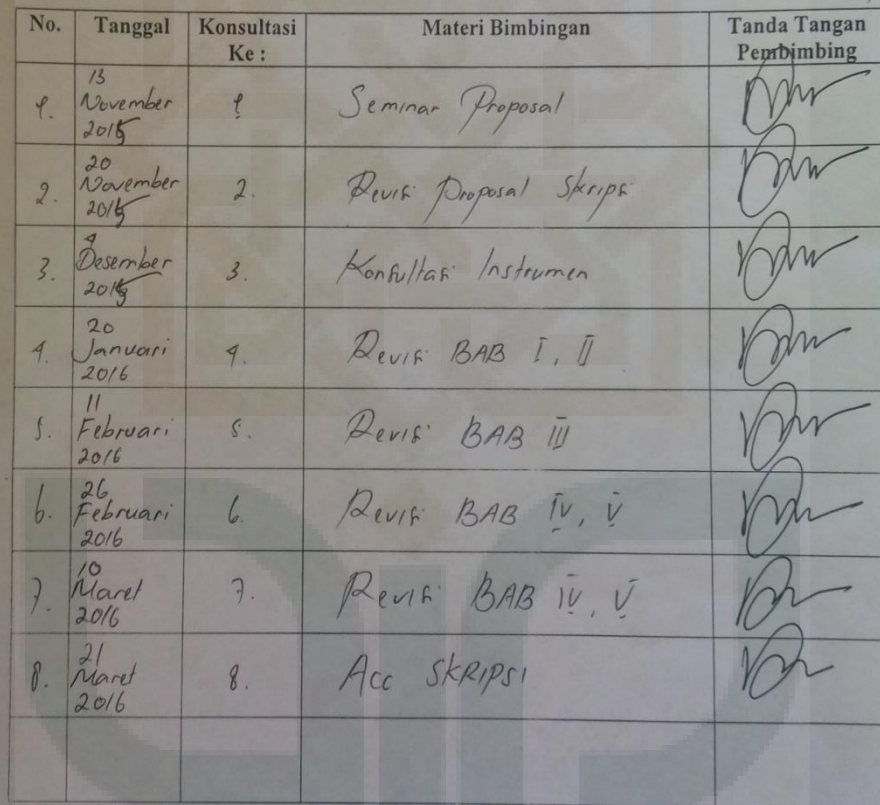 No. Tanggal Konsultasi Ke : Materi Bimbingan Tanda Tangan Pembimbing
1. 13 November 2015 1 Seminar Proposal
2. 20 November 2015 2. Revisi Proposal Skripsi
3. 4 Desember 2015 3. Konsultasi Instrumen
4. 20 Januari 2016 4. Revisi BAB I, II
5. 11 Februari 2016 5. Revisi BAB III
6. 26 Februari 2016 6. Revisi BAB IV, V
7. 10 Maret 2016 7. Revisi BAB IV, V
8. 21 Maret 2016 8. Acc SKRIPSI